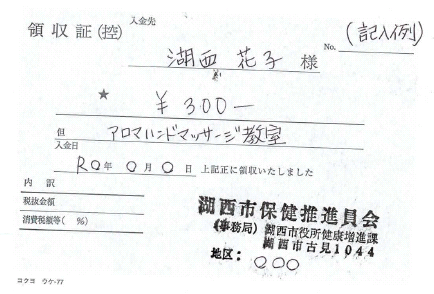 領収証(控)
入金先
湖西 花子 様
No.
(記入例)
★ ¥300ー
但 アロマハンドマッサージ教室
入金日
R〇年 〇月 〇日 上記正に領収いたしました
内 訳
税抜金額
消費税額等( %)
湖西市保健推進員会
(事務局) 湖西市役所健康増進課
湖西市古見1044
地区: 〇〇〇
コクヨ ウケ-77